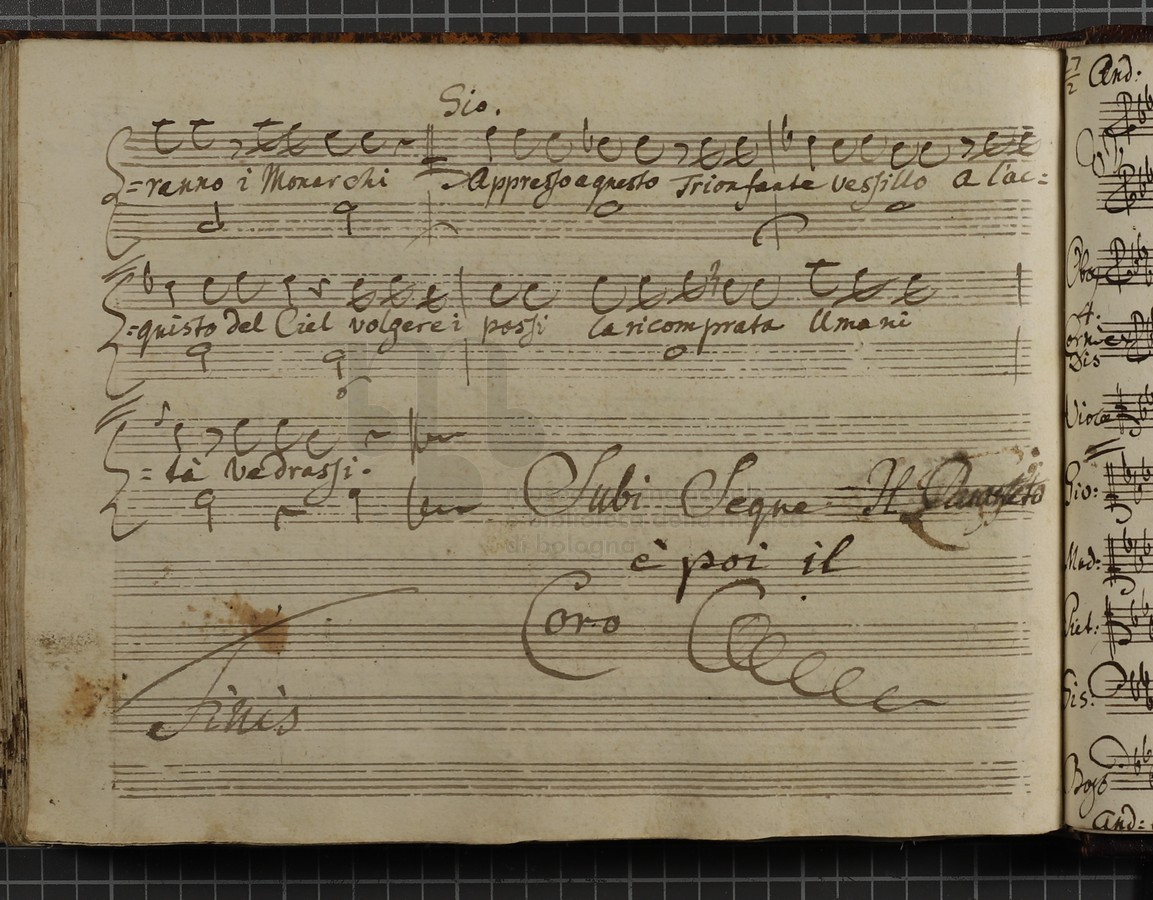 Gio.
=ranno i Monarchi Appresso a questo Trionfante vessillo a l'ac=
=quisto del Ciel volgere i passi la ricomprata Umani
=tà vedrassi.
Subi Segue Il
è poi il
Coro
Finis
museo internazionale
e biblioteca della musica
di bologna
And:
Oboe
Viola
Gio:
Mad:
And: